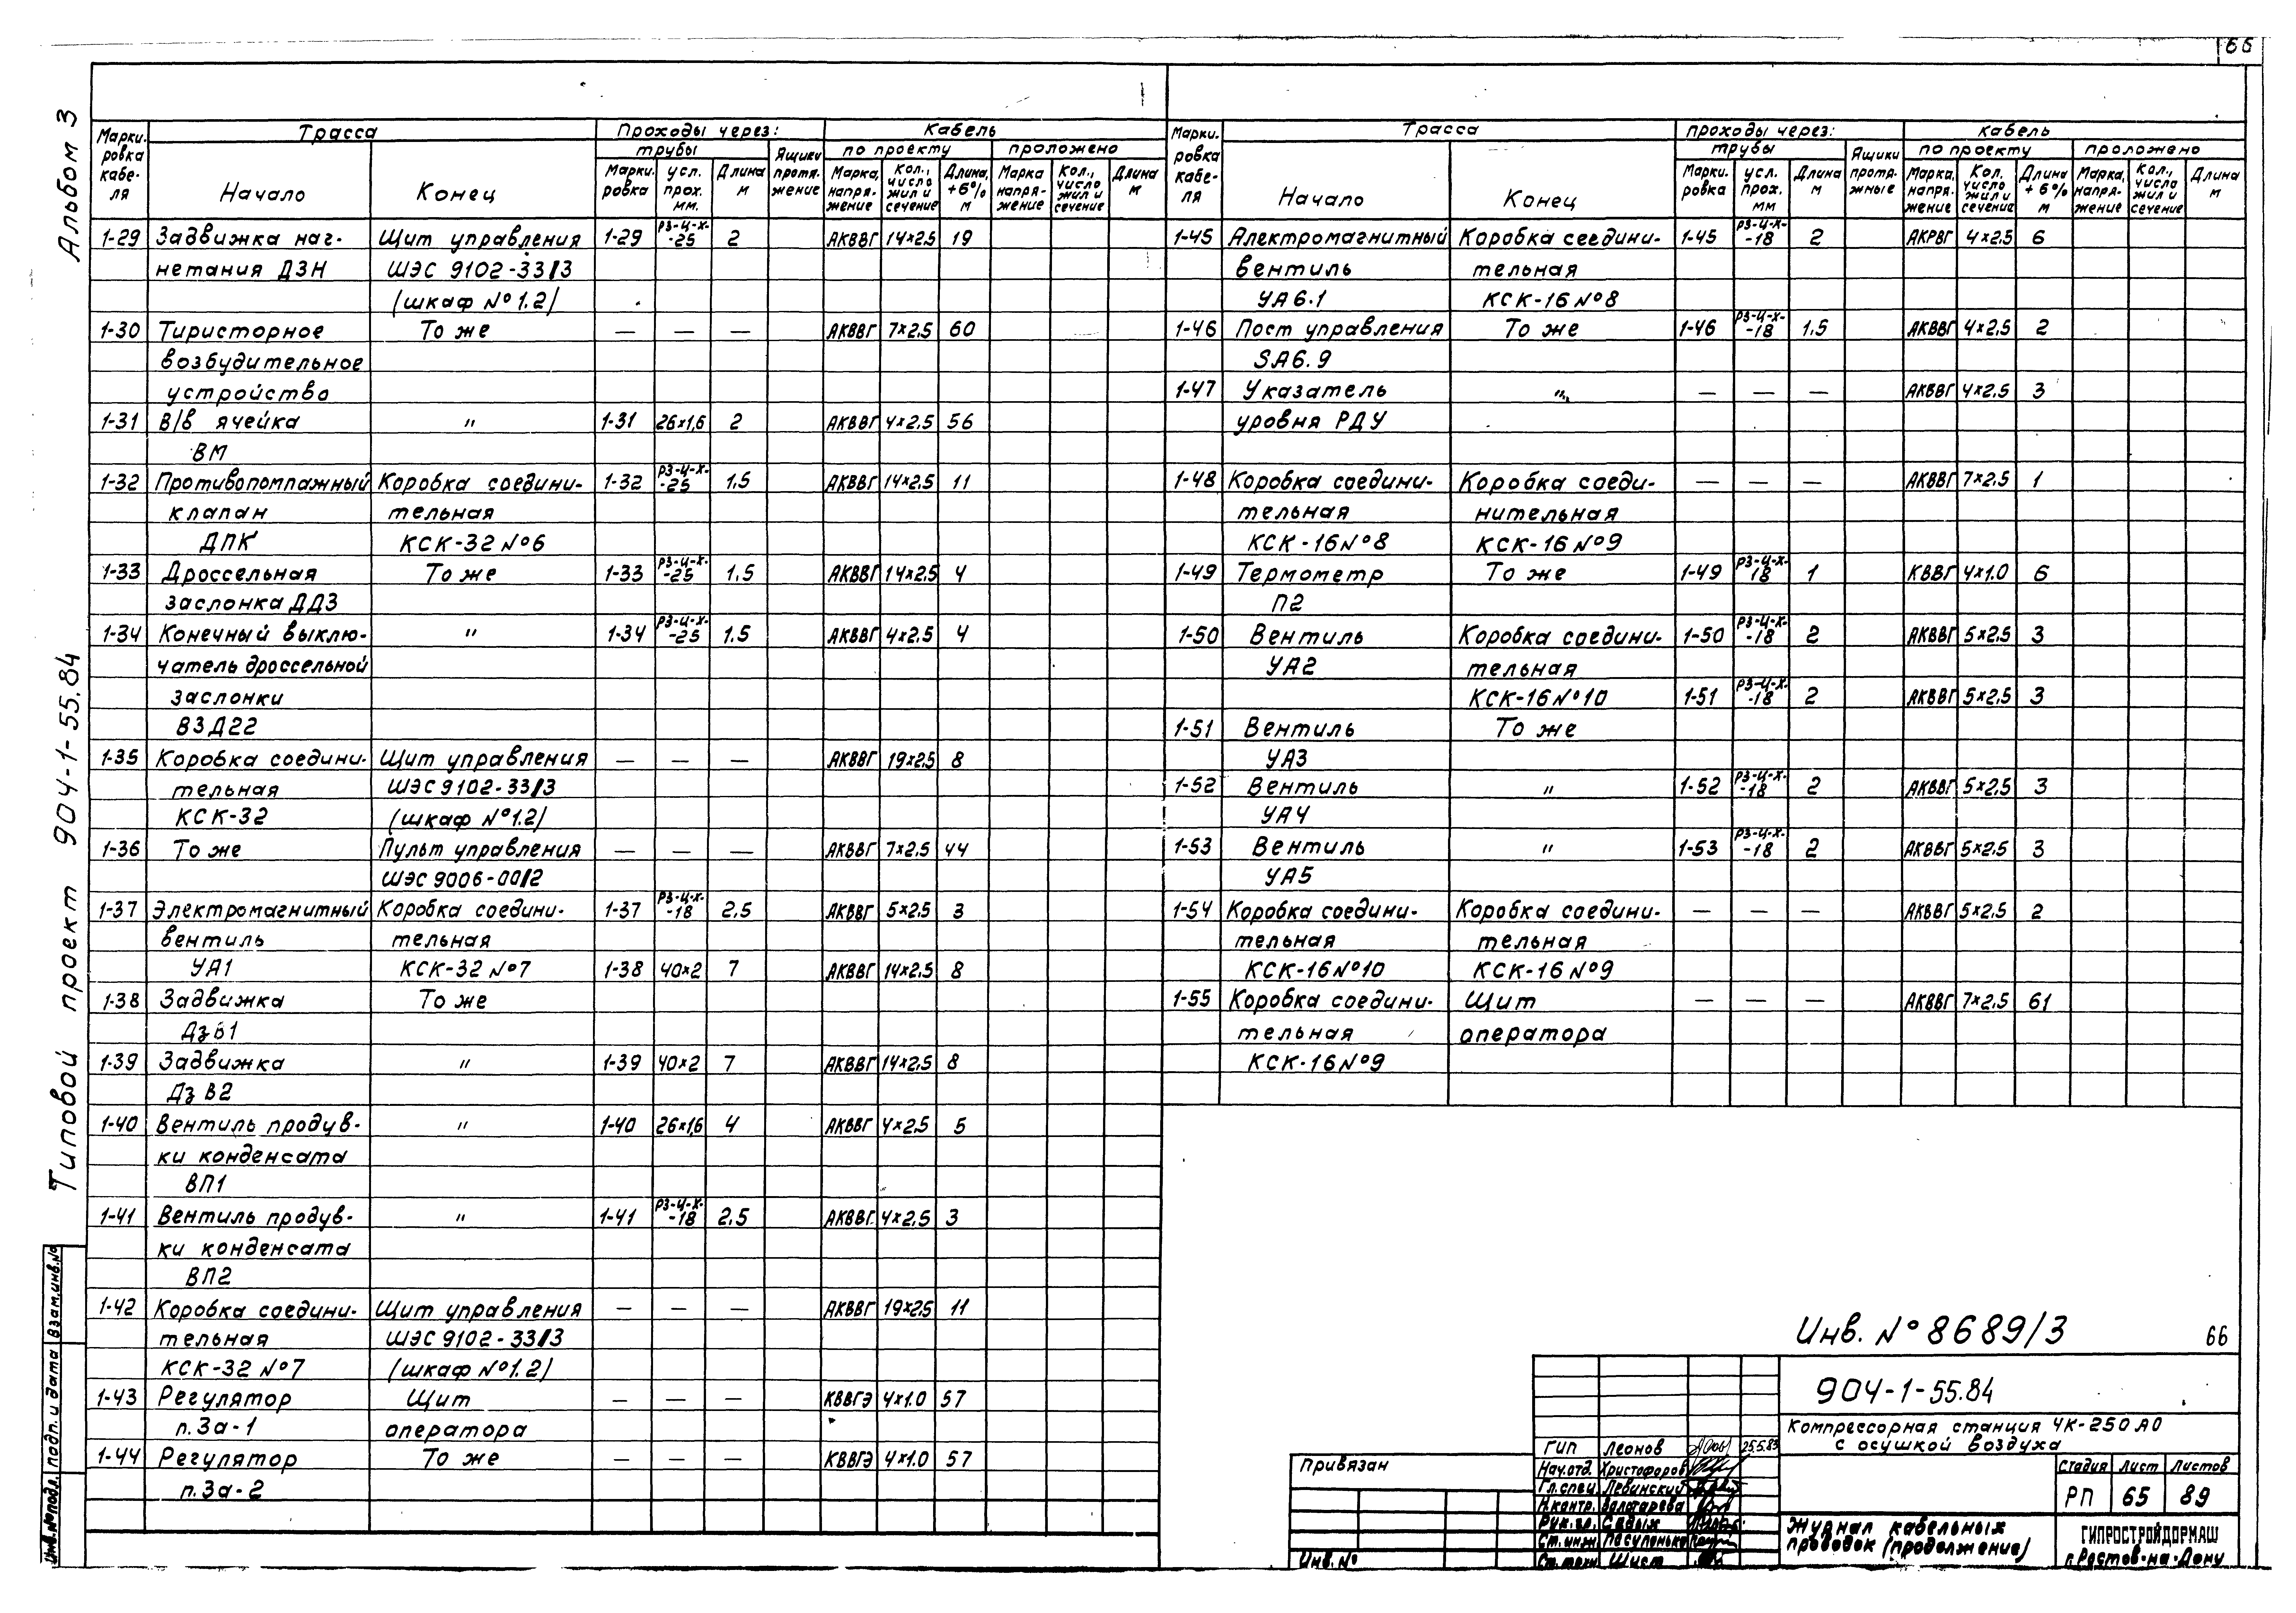 66
Альбом 3
Типовой проект 904-1-55.84
Марки-ровка кабе-ля | Трасса | Проходы через: | Кабель
трубы | Ящики протя-жение | по проекту | проложено
Начало | Конец | Марки-ровка | усл. прох. мм. | Длина м | Марка, напря-жение | Кол., число жил и сечение | Длина, +6% м | Марка напря-жение | Кол., число жил и сечение | Длина м
1-29 Задвижка наг- Щит управления 1-29 РЗ-Ц-Х--25 2 АКВВГ 14×2.5 19
нетания ДЗН ШЭС 9102-33/3
(шкаф №1.2)
1-30 Тиристорное То же — — — АКВВГ 7×2.5 60
возбудительное
устройство
1-31 В/в ячейка " 1-31 26×1,6 2 АКВВГ 4×2.5 56
ВМ
1-32 Противопомпажный Коробка соедини- 1-32 РЗ-Ц-Х--25 1.5 АКВВГ 14×2.5 11
клапан тельная
ДПК КСК-32 №6
1-33 Дроссельная То же 1-33 РЗ-Ц-Х--25 1.5 АКВВГ 14×2.5 4
заслонка ДДЗ
1-34 Конечный выклю- " 1-34 РЗ-Ц-Х--25 1.5 АКВВГ 4×2.5 4
чатель дроссельной
заслонки
ВЗД22
1-35 Коробка соедини- Щит управления — — — АКВВГ 19×2.5 8
тельная ШЭС 9102-33/3
КСК-32 (шкаф №1.2)
1-36 То же Пульт управления — — — АКВВГ 7×2.5 44
ШЭС 9006-00/2
1-37 Электромагнитный Коробка соедини- 1-37 РЗ-Ц-Х--18 2.5 АКВВГ 5×2.5 3
вентиль тельная
УА1 КСК-32 №7 1-38 40×2 7 АКВВГ 14×2.5 8
1-38 Задвижка То же
ДзВ1
1-39 Задвижка " 1-39 40×2 7 АКВВГ 14×2.5 8
Дз В2
1-40 Вентиль продув- " 1-40 26×1,6 4 АКВВГ 4×2.5 5
ки конденсата
ВП1
1-41 Вентиль продув- " 1-41 РЗ-Ц-Х--18 2.5 АКВВГ 4×2.5 3
ки конденсата
ВП2
1-42 Коробка соедини- Щит управления — — — АКВВГ 19×2.5 11
тельная ШЭС 9102-33/3
КСК-32 №7 (шкаф №1.2)
1-43 Регулятор Щит — — — КВВГЭ 4×1.0 57
п.3а-1 оператора
1-44 Регулятор То же — — — КВВГЭ 4×1.0 57
п.3а-2
Марки-ровка кабе-ля | Трасса | проходы через: | кабель
трубы | Ящики протя-жные | по проекту | проложено
Начало | Конец | Марки-ровка | усл. прох. мм | Длина м | Марка, напря-жение | Кол. число жил и сечение | Длина +6% м | Марка, напря-жение | Кол., число жил и сечение | Длина м
1-45 Алектромагнитный Коробка соедини- 1-45 РЗ-Ц-Х--18 2 АКРВГ 4×2.5 6
вентиль тельная
УА6.1 КСК-16 №8
1-46 Пост управления То же 1-46 РЗ-Ц-Х--18 1.5 АКВВГ 4×2.5 2
SА6.9
1-47 Указатель " — — — АКВВГ 4×2.5 3
уровня РДУ
1-48 Коробка соедини- Коробка соеди- — — — АКВВГ 7×2.5 1
тельная нительная
КСК-16 №8 КСК-16 №9
1-49 Термометр То же 1-49 РЗ-Ц-Х-18 1 КВВГ 4×1.0 6
П2
1-50 Вентиль Коробка соедини- 1-50 РЗ-Ц-Х--18 2 АКВВГ 5×2.5 3
УА2 тельная
КСК-16 №10 1-51 РЗ-Ц-Х--18 2 АКВВГ 5×2.5 3
1-51 Вентиль То же
УА3
1-52 Вентиль " 1-52 РЗ-Ц-Х--18 2 АКВВГ 5×2.5 3
УА4
1-53 Вентиль " 1-53 РЗ-Ц-Х--18 2 АКВВГ 5×2.5 3
УА5
1-54 Коробка соедини- Коробка соедини- — — — АКВВГ 5×2.5 2
тельная тельная
КСК-16 №10 КСК-16 №9
1-55 Коробка соедини- Щит — — — АКВВГ 7×2.5 61
тельная оператора
КСК-16 №9
Инв. № 8689/3 66
904-1-55.84
Компрессорная станция 4К-250А0
с осушкой воздуха
ГИП Леонов 25.5.83
Нач.отд. Христофоров
Гл.спец. Левинский
Н.контр. Болотарева
Рук.гр. Седых
Ст.инж. Пасупонько
Ст.техн. Шист
Привязан
Инв. №
Стадия Лист Листов
РП 65 89
Журнал кабельных
проводок (продолжение)
ГИПРОСТРОЙДОРМАШ
г. Ростов-на-Дону
Инв.№ подл. подп. и дата Взам.инв.№